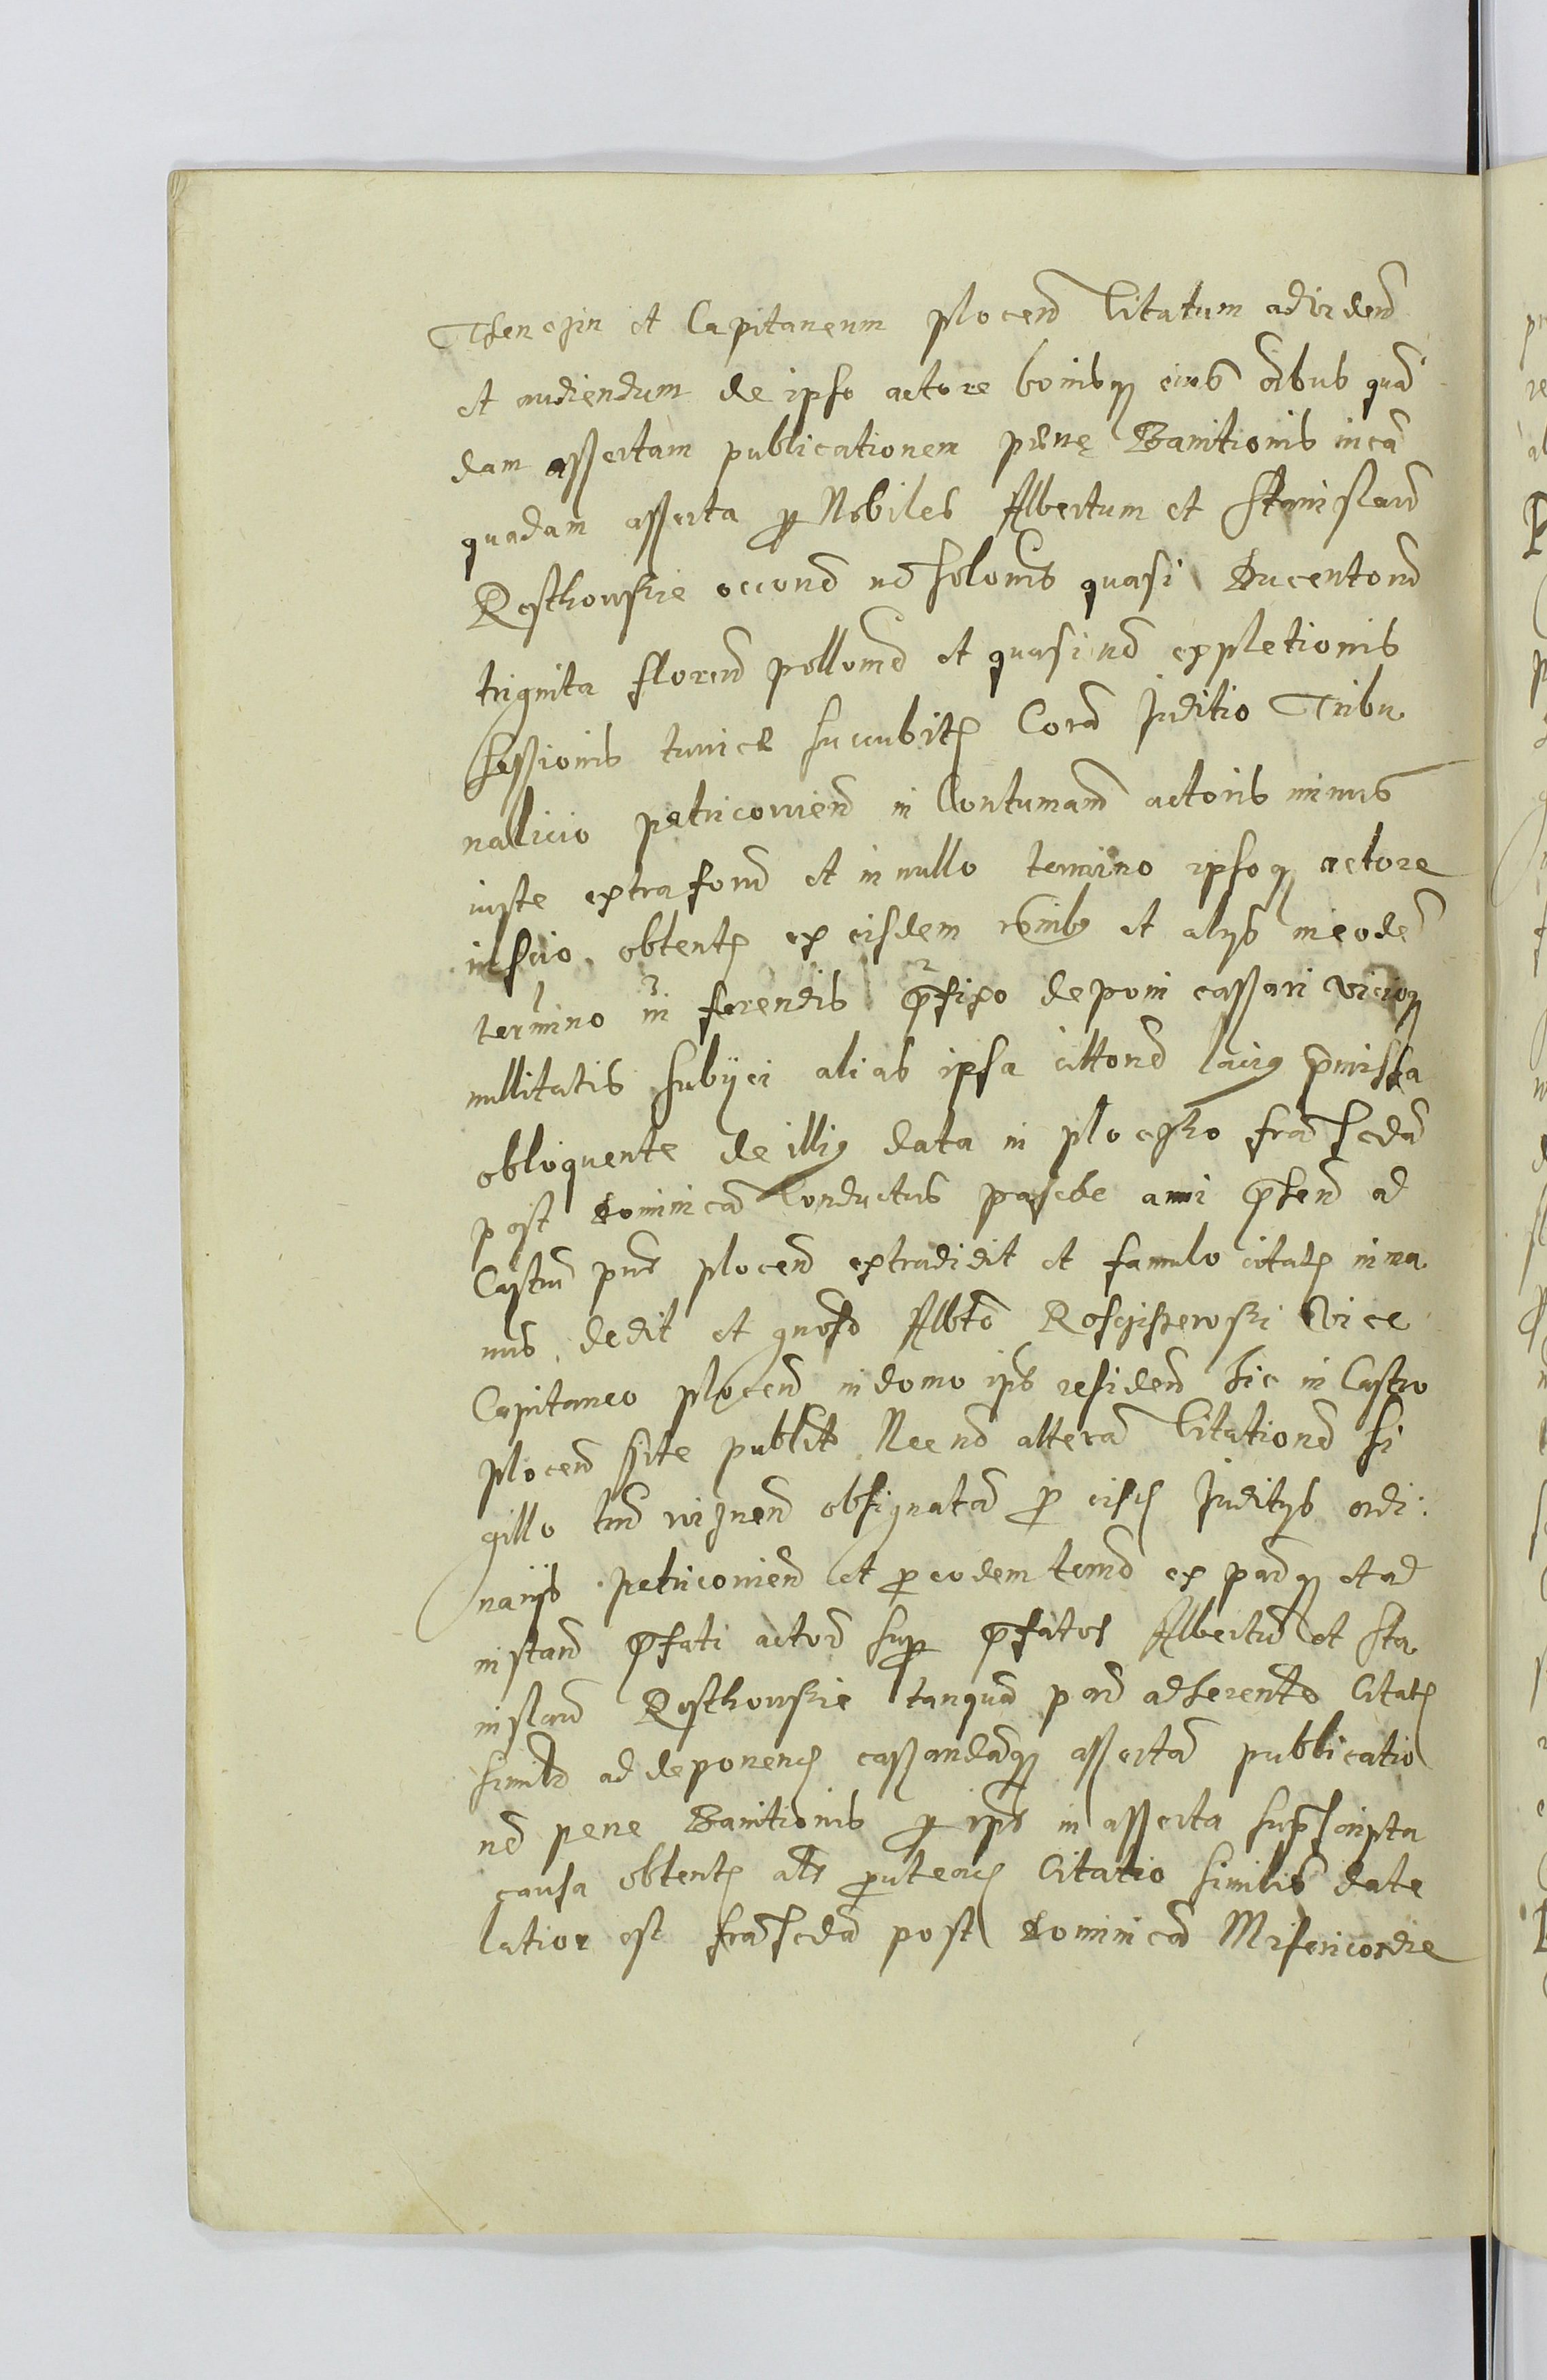 Thenczin et Capitaneum plocen Citatum ad viden
et audiendum de ipso actore bonisq eius oibus quan
dam assertam publicationem penę Banitionis in ca
quadam asserta p Nobiles Albertum et Stanislaum
Rosthowskie occone no solonis quasi Ducentorum
triginta floren pollon et quasi no expletionis
sessionis turricl succubits Coram Juditio Tribu
nalicio petricovien in Contumam actoris minus
iuste extra forum et in nullo termino ipsoq actore
inscio obtents ex eisdem ronibs et alys in eode
termino in ferendis pfixo deponi cassari vicioq
nullitatis subijci alias ipsa citton lacius pmissa
obloquente de illis data in ploczko fra scda
post dominicam Conductus pasche anni psen ad
Castrum pns plocen extradidit et famulo citats in ma
nus dedit et gnoso Albto Rosczissewski Vice
Capitaneo plocen in domo ips residen hic in Castro
plocen site publit Nec no alteram Citationem si
gillo trm vignen obsignatam p eisds Juditys ordi
narijs petricovien et p eodem termo ex parq et ad
instan pfati actoris sup pfatos Albertum et Sta
nislaum Rosthowskie tanquam par adherente Citats
simlr ad deponends cassandamq assertam publicatio
nem pene Banitionis p ips in asserta suprascripta
causa obtents als put eads Citatio similis date
latior est fra scda post dominicam Misericordie